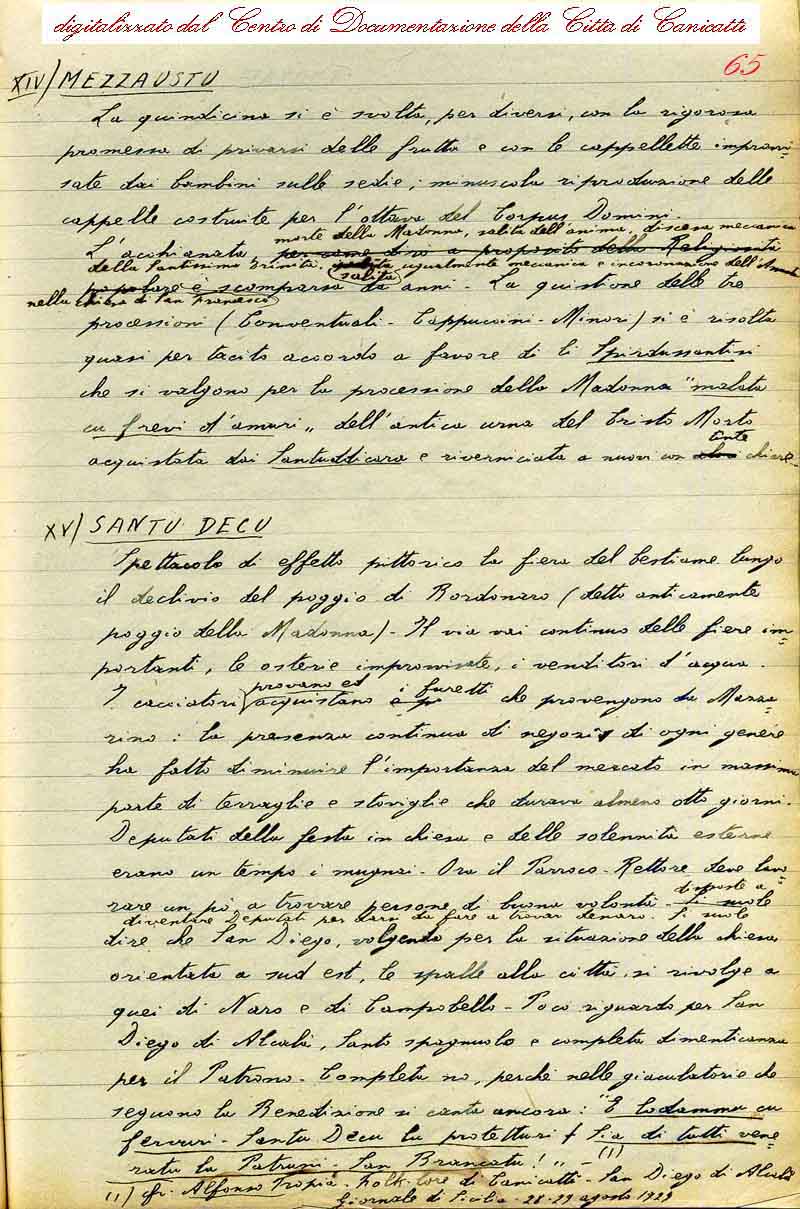 digitalizzato dal Centro di Documentazione della Città di Canicattì
65
XIV/ MEZZAUSTU
La quindicina si è svolta, per diversi, con la rigorosa
promessa di privarsi delle frutta e con le cappellette improvvi=
sate dai bambini sulle sedie; minuscola riproduzione delle
cappelle costruite per l'ottava del Corpus Domini.
morte della Madonna, salita dell'anima, discesa meccanica
L'acchianata per come dissi a proposito della Religiosità
della Santissima Trinità, salita ugualmente meccanica e incoronazione dell'Assunta
popolare è scomparsa da anni - La quistione delle tre
nella chiesa di San Francesco
processioni (Conventuali - Cappuccini - Minori) si è risolta
quasi per tacito accordo a favore di li Spirdussantisi
che si valgono per la processione della Madonna "malata
cu frevi d'amuri" dell'antica urna del Cristo Morto
acquistata dai Santuddicara e riverniciata a nuovi con tinte chiare -
XV/ SANTU DECU
Spettacolo di effetto pittorico la fiera del bestiame lungo
il declivio del poggio di Bordonaro (detto anticamente
poggio della Madonna) - Il via vai continuo delle fiere im=
portanti, le osterie improvvisate, i venditori d'acqua.
I cacciatori provano ed acquistano i furetti che provengono da Mazza=
rino: la presenza continua di negozi di ogni genere
ha fatto diminuire l'importanza del mercato in massima
parte di terraglie e stoviglie che durava almeno otto giorni.
Deputati della festa in chiesa e delle solennità esterne
erano un tempo i mugnai - Ora il Parroco - Rettore deve lavo=
rare un pò a trovare persone di buona volontà - disposte a Si suole
diventare Deputati per darsi da fare a trovar denaro. Si suole
dire che San Diego, volgendo per la situazione della chiesa
orientata a sud est, le spalle alla città, si rivolge a
quei di Naro e di Campobello - Poco riguardo per San
Diego di Alcalà, Santo spagnuolo e completa dimenticanza
per il Patrono - Completa no, perchè nelle giaculatorie che
seguono la Benedizione si canta ancora: "E lodammu cu
fervuri - Santu Decu lu protetturi + Sia di tutti vene=
ratu lu Patruni - San Brancatu!" - (1)
(1) Cfr. Alfonso Tropia - Folk-lore di Canicattì - San Diego di Alcalà
Giornale di Sicilia - 28-29 agosto 1929